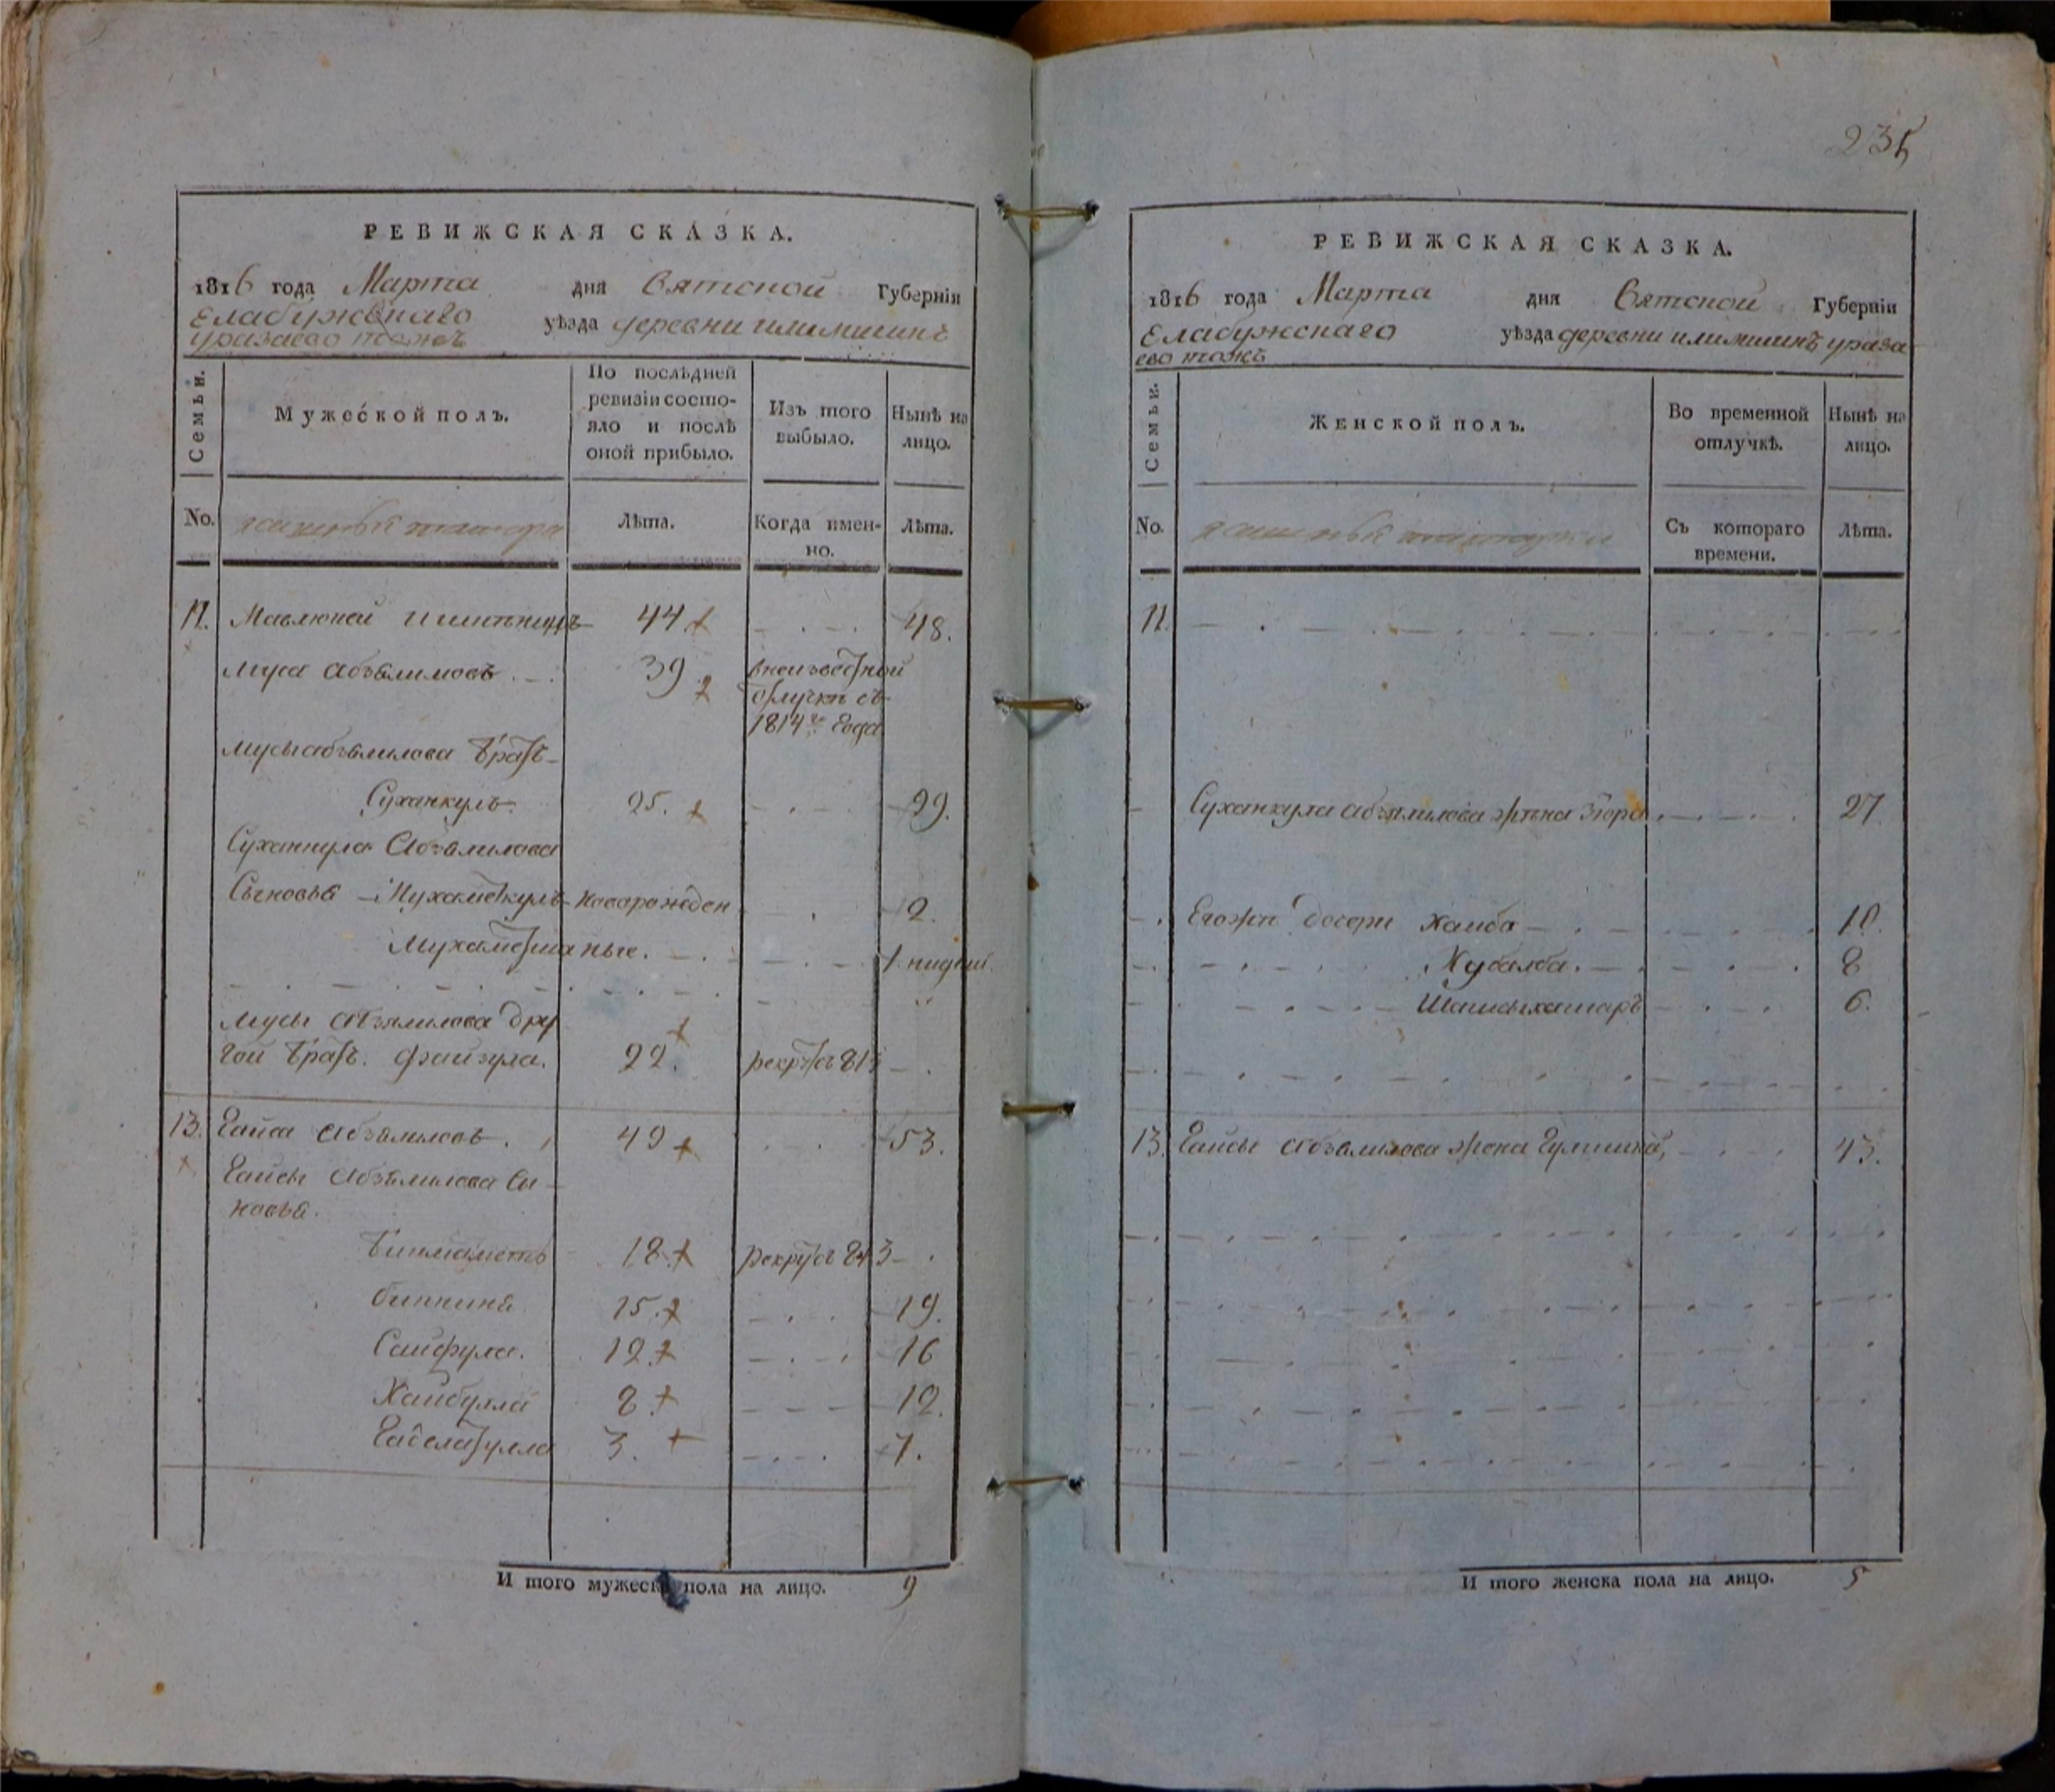 РЕВИЖСКАЯ СКАЗКА.
1816 года Марта дня Вятской Губернїи
Елабужскаго уѣзда деревни илимшинъ
уразаево тожъ
Семьи.
Мужеской полъ.
По послѣдней ревизїи состояло и послѣ оной прибыло.
Изъ того выбыло.
Нынѣ на лицо.
No.
Лѣта.
Когда имен-
но.
Лѣта.
44 48.
Муса Абзялиловъ 39 в неизвестной
отлучкѣ съ
1814го года
Мусы абзялилова братъ
Суханкулъ. 25. 29.
Суханкула Абзялилова
Сыновья Мухаметкулъ новорожден 2.
Мухаметша ные. 1 недели
Мусы абзялилова дру
гой братъ. Файзула. 22. рекрутъ 813
13. Гайса абзялиловъ. 49 53.
Гайсы абзялилова сы
новья.
Бикмаметь 18 рекрутъ 813
биккиня 15. 19.
Сайфула. 12 16
Хайбулла 8 12.
Габелатулла 3. 7.
И того мужеска пола на лицо. 9
235
РЕВИЖСКАЯ СКАЗКА.
1816 года Марта дня Вятской Губернїи
Елабужскаго уѣзда деревни илимшинъ ураза
ево тожъ
Семьи.
Женской полъ.
Во временной отлучкѣ.
Нынѣ на лицо.
No.
Съ котораго времени.
Лѣта.
Суханкула абзялилова жена Зюра 27
Егожъ дочери Хаиба 10.
Хубалба. 8
Шамсыкамаръ 6.
13. Гайсы абзялилова жена 43.
И того женска пола на лицо. 5